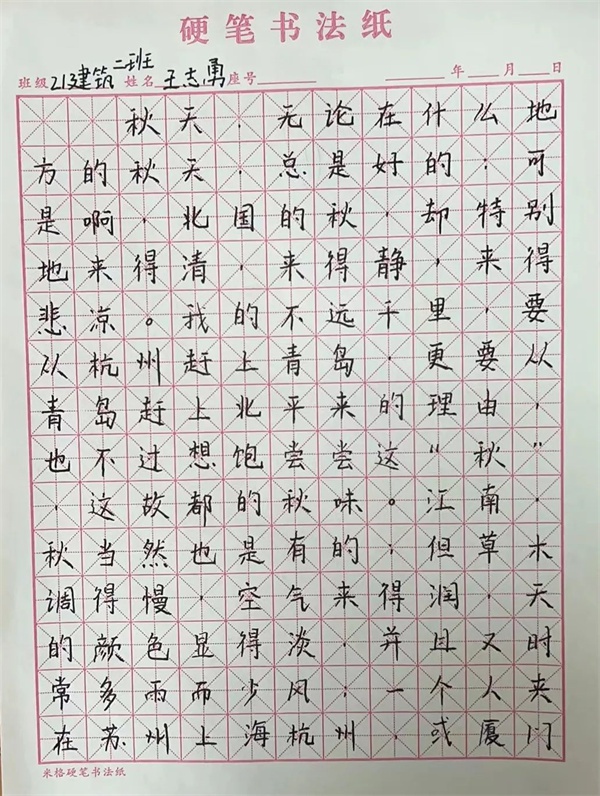 硬笔书法纸
班级 21建筑二班 姓名 王志勇 座号 年 月 日
秋天，无论在什么地
方的秋天，总是好的；可
是啊，北国的秋，却特别
地来得清，来得静，来得
悲凉。我的不远千里，要
从杭州赶上青岛，更要从
青岛赶上北平来的理由，
也不过想饱尝尝这“秋”
，这故都的秋味。江南，
秋当然也是有的；但草木
调得慢，空气来得润，天
的颜色显得淡，并且又时
常多雨而少风；一个人夹
在苏州上海杭州，或厦门
米格硬笔书法纸